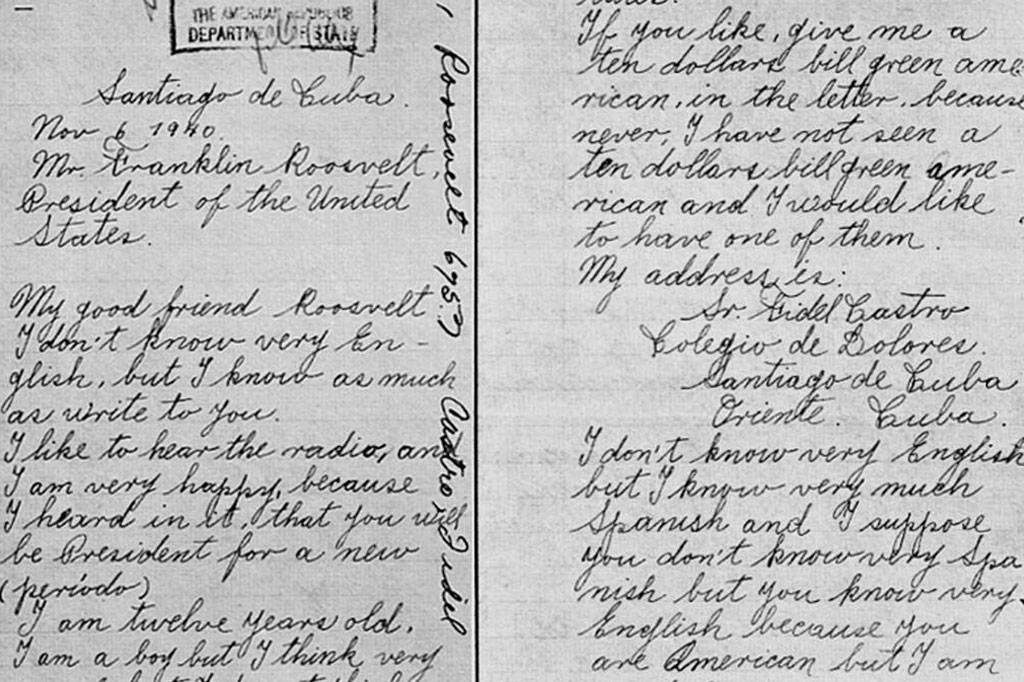 THE AMERICAN REPUBLICS
DEPARTMENT OF STATE
Santiago de Cuba.
Nov 6 1940.
Mr. Franklin Roosvelt,
President of the United
States.
My good friend Roosvelt
I don't know very En-
glish, but I know as much
as write to you.
I like to hear the radio, and
I am very happy, because
I heard in it, that you will
be President for a new
(período)
I am twelve years old.
I am a boy but I think very
Roosevelt
Castro, Fidel
If you like, give me a
ten dollars bill green ame-
rican, in the letter, because
never, I have not seen a
ten dollars bill green ame-
rican and I would like
to have one of them.
My address is:
Sr. Fidel Castro
Colegio de Dolores.
Santiago de Cuba
Oriente. Cuba.
I don't know very English
but I know very much
Spanish and I suppose
you don't know very Spa
nish but you know very
English because you
are American but I am